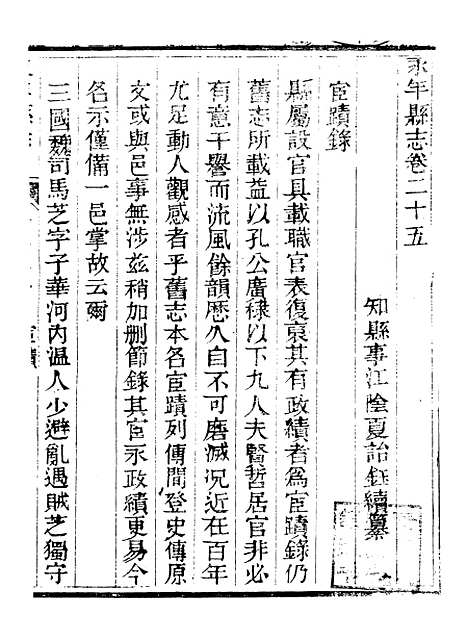 永年縣志卷二十五
知縣事江陰夏詒鈺續纂
宦蹟錄
縣屬設官具載職官表復裒其有政績者爲宦蹟錄仍
舊志所載益以孔公廣棣以下九人夫賢哲居官非必
有意干譽而流風餘韻歷久自不可磨滅況近在百年
尤足動人觀感者乎舊志本名宦蹟列傳間登史傳原
文或與邑事無涉茲稍加刪節錄其宦永政績更易今
名示僅備一邑掌故云爾
三國魏司馬芝字子華河內温人少避亂遇賊芝獨守